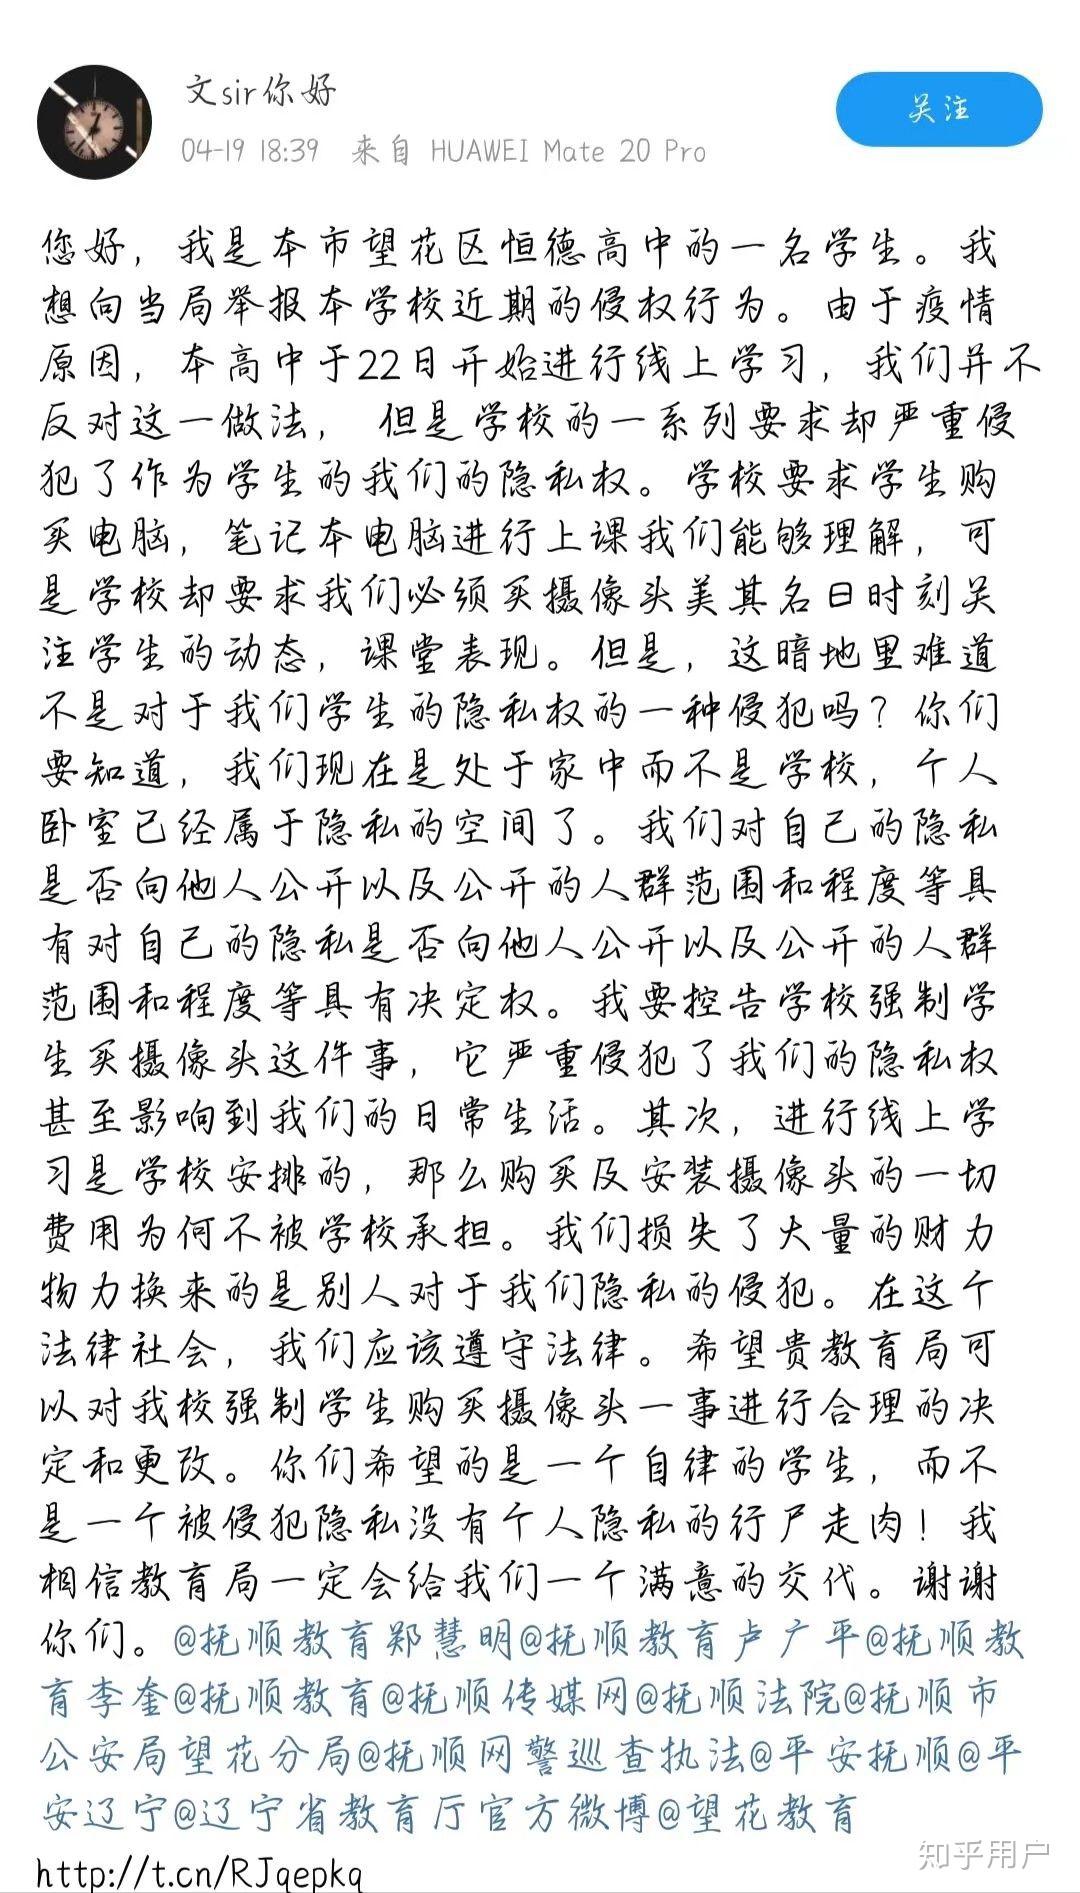 文sir你好
关注
04-19 18:39 来自 HUAWEI Mate 20 Pro
您好，我是本市望花区恒德高中的一名学生。我
想向当局举报本学校近期的侵权行为。由于疫情
原因，本高中于22日开始进行线上学习，我们并不
反对这一做法， 但是学校的一系列要求却严重侵
犯了作为学生的我们的隐私权。学校要求学生购
买电脑，笔记本电脑进行上课我们能够理解，可
是学校却要求我们必须买摄像头美其名曰时刻关
注学生的动态，课堂表现。但是，这暗地里难道
不是对于我们学生的隐私权的一种侵犯吗？你们
要知道，我们现在是处于家中而不是学校，个人
卧室已经属于隐私的空间了。我们对自己的隐私
是否向他人公开以及公开的人群范围和程度等具
有对自己的隐私是否向他人公开以及公开的人群
范围和程度等具有决定权。我要控告学校强制学
生买摄像头这件事，它严重侵犯了我们的隐私权
甚至影响到我们的日常生活。其次，进行线上学
习是学校安排的，那么购买及安装摄像头的一切
费用为何不被学校承担。我们损失了大量的财力
物力换来的是别人对于我们隐私的侵犯。在这个
法律社会，我们应该遵守法律。希望贵教育局可
以对我校强制学生购买摄像头一事进行合理的决
定和更改。你们希望的是一个自律的学生，而不
是一个被侵犯隐私没有个人隐私的行尸走肉！我
相信教育局一定会给我们一个满意的交代。谢谢
你们。@抚顺教育郑慧明@抚顺教育卢广平@抚顺教
育李奎@抚顺教育@抚顺传媒网@抚顺法院@抚顺市
公安局望花分局@抚顺网警巡查执法@平安抚顺@平
安辽宁@辽宁省教育厅官方微博@望花教育
http://t.cn/RJqepkq
知乎用户